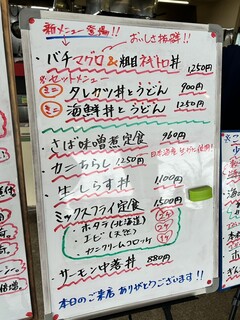 新メニュー登場!!
おいしさ抜群!!
・バチマグロ&粗目ネギトロ丼 1250円
セットメニュー
ミニ タレカツ丼とうどん 900円
ミニ 海鮮丼とうどん 1250円
・さば味噌煮定食 960円
・カニあらし 1250円
・生しらす丼 1100円
・ミックスフライ定食 1500円
・ホタテ(北海道) 2ケ
・エビ(天然) 2ケ
・カニクリームコロッケ 1ケ
・サーモン中落丼 880円
本日のご来店 ありがとうございます!!